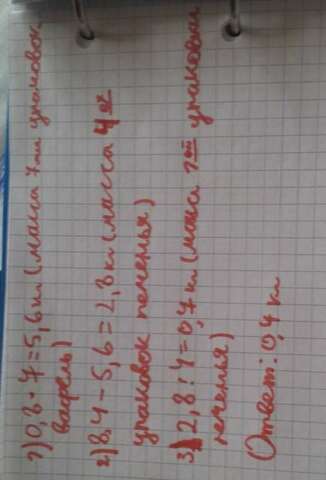 1) 0,8 · 7 = 5,6 кг (масса 7ми упаковок
вафель)
2) 8,4 - 5,6 = 2,8 кг (масса 4ех
упаковок печенья)
3) 2,8 : 4 = 0,7 кг (масса 1ой упаковки
печенья)
Ответ: 0,7 кг